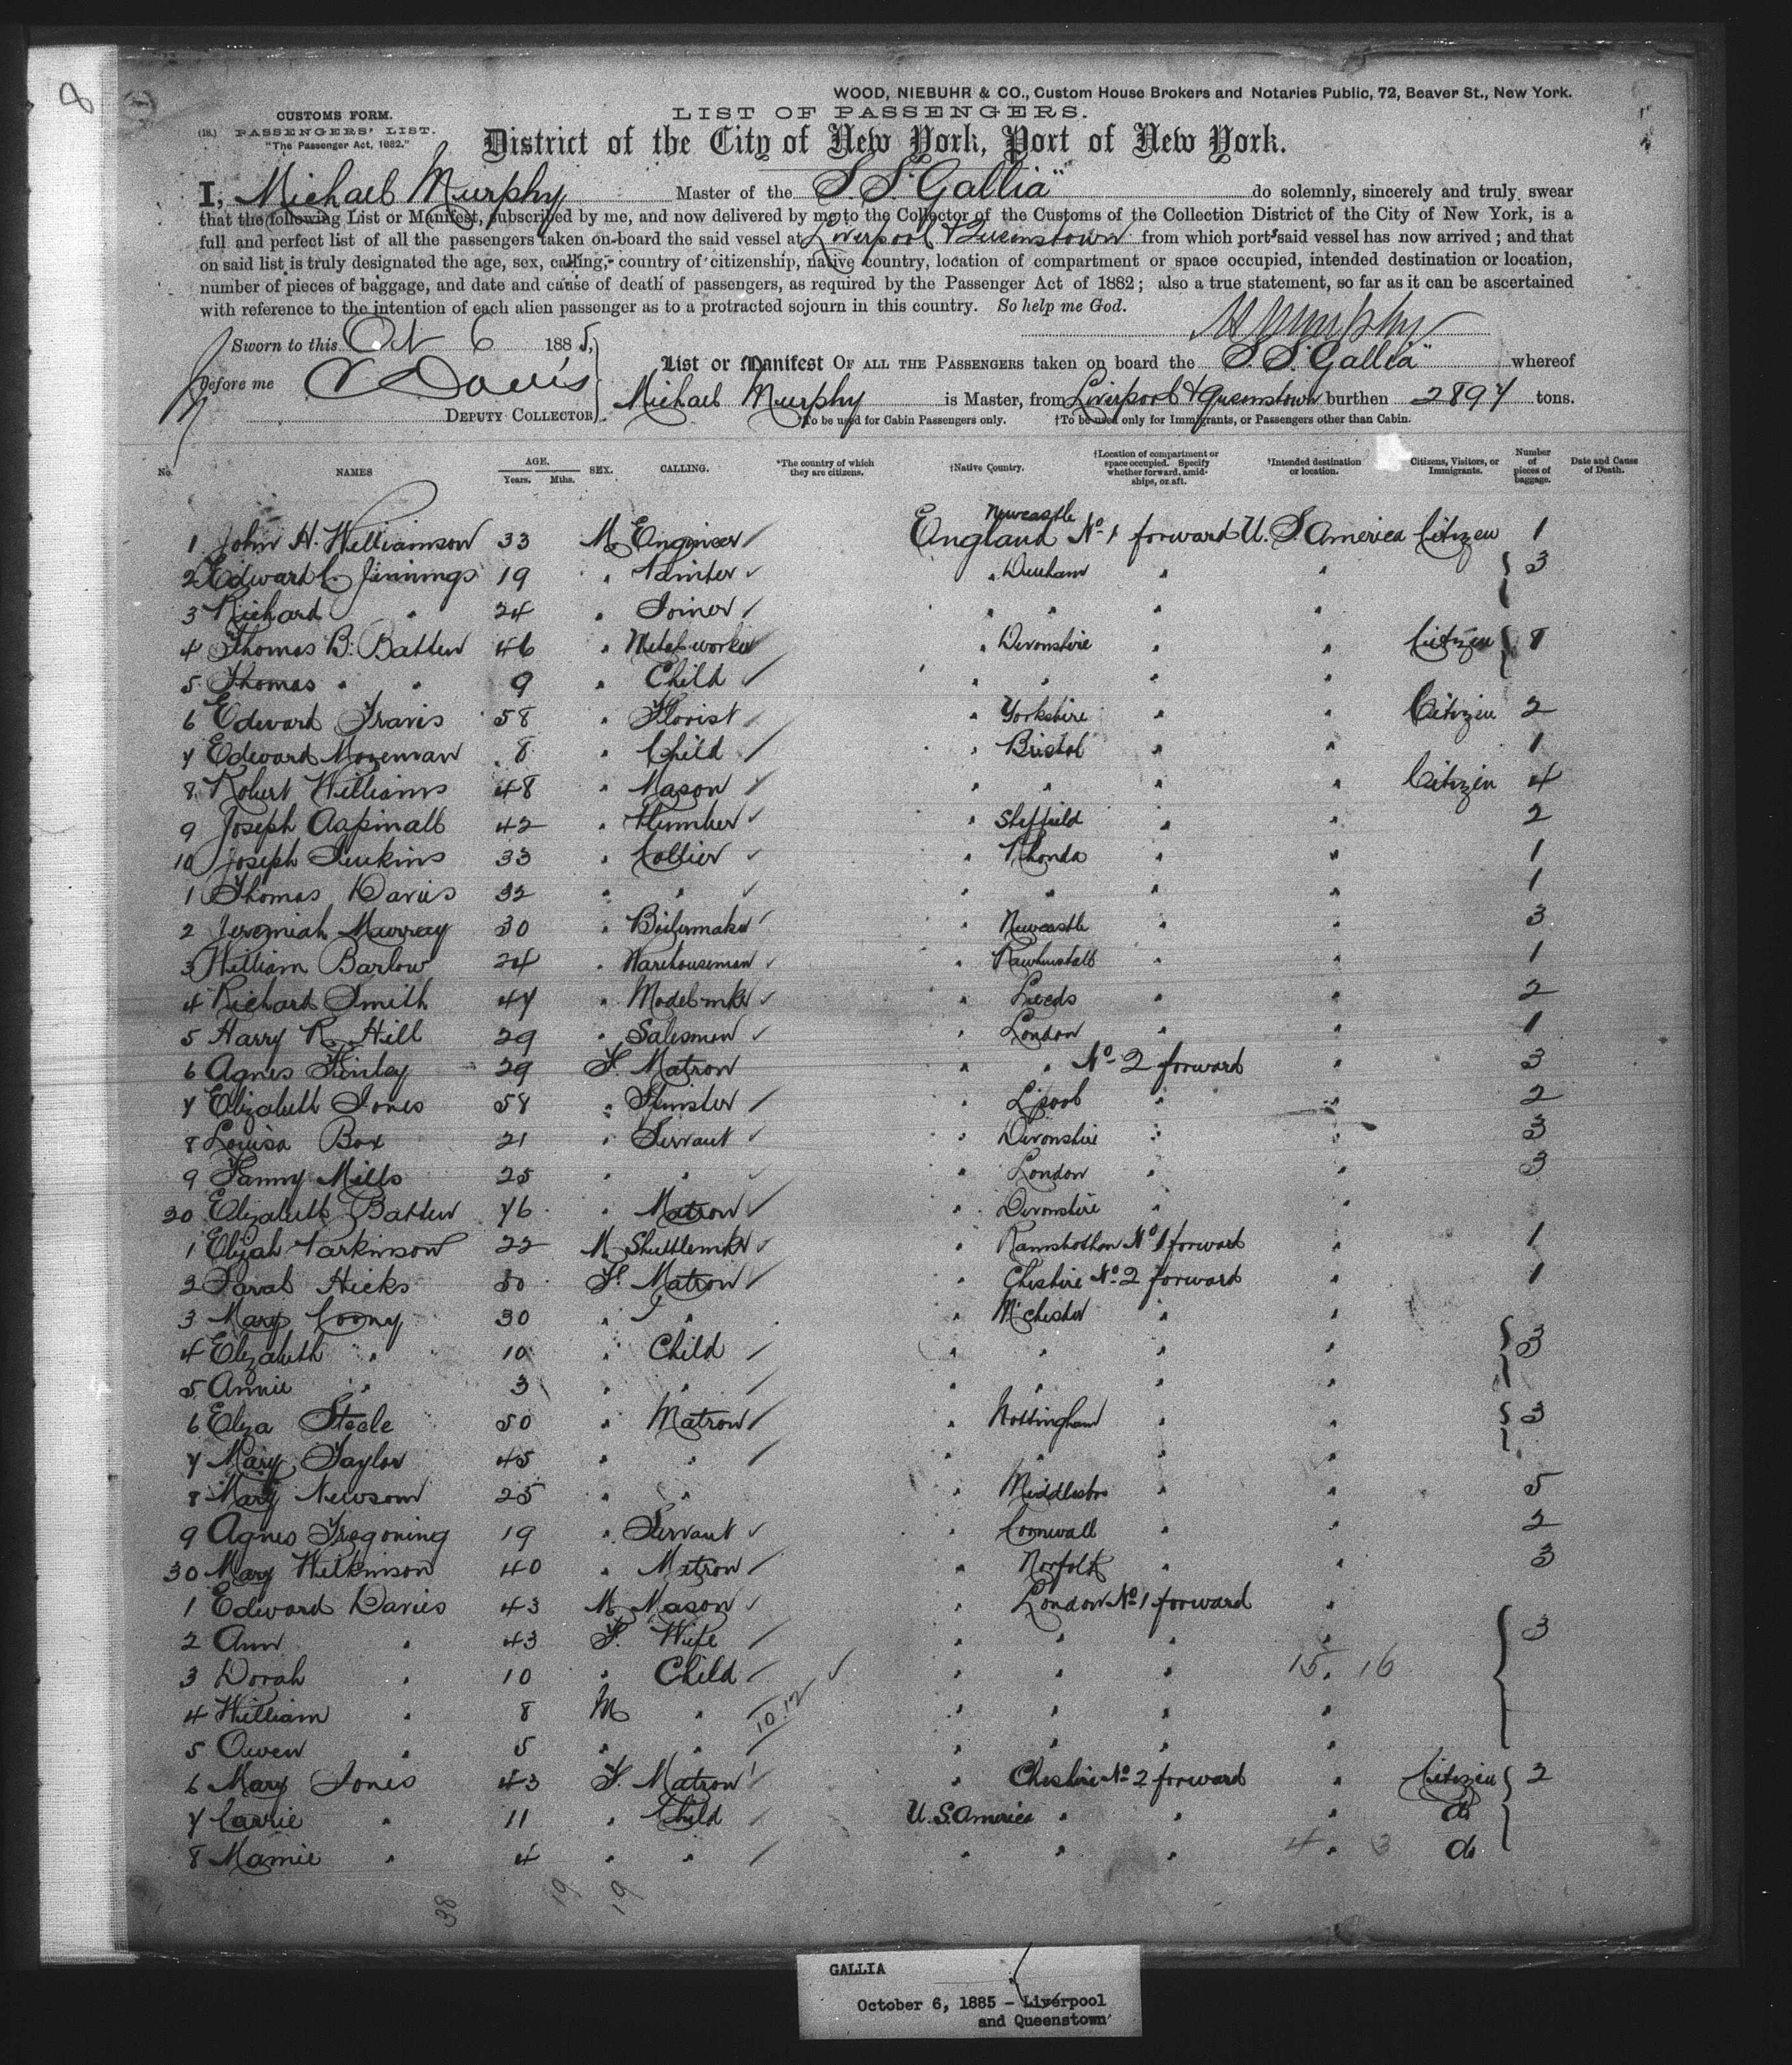 8
WOOD, NIEBUHR & CO., Custom House Brokers and Notaries Public, 72, Beaver St., New York.
CUSTOMS FORM.
LIST OF PASSENGERS.
(18.) PASSENGERS' LIST.
"The Passenger Act, 1882."
District of the City of New York, Port of New York.
I, Michael Murphy Master of the S.S. "Gallia" do solemnly, sincerely and truly swear
that the following List or Manifest, subscribed by me, and now delivered by me to the Collector of the Customs of the Collection District of the City of New York, is a
full and perfect list of all the passengers taken on board the said vessel at Liverpool & Queenstown from which ports said vessel has now arrived; and that
on said list is truly designated the age, sex, calling, country of citizenship, native country, location of compartment or space occupied, intended destination or location,
number of pieces of baggage, and date and cause of death of passengers, as required by the Passenger Act of 1882; also a true statement, so far as it can be ascertained
with reference to the intention of each alien passenger as to a protracted sojourn in this country. So help me God.
M Murphy
Sworn to this Oct 6 1885,
List or Manifest OF ALL THE PASSENGERS taken on board the S.S. "Gallia" whereof
before me Davis
Michael Murphy is Master, from Liverpool & Queenstown burthen 2897 tons.
DEPUTY COLLECTOR
*To be used for Cabin Passengers only. †To be used only for Immigrants, or Passengers other than Cabin.
No. NAMES AGE. Years. Mths. SEX. CALLING. *The country of which they are citizens. †Native Country. †Location of compartment or space occupied. Specify whether forward, amidships, or aft. *Intended destination or location. Citizens, Visitors, or Immigrants. Number of pieces of baggage. Date and Cause of Death.
1 John H. Williamson 33 M. Engineer England Newcastle No. 1 forward U.S. America Citizen 1
2 Edward C. Jinnings 19 " Painter " Durham " " 3
3 Richard " 24 " Joiner " " " "
4 Thomas B. Batten 46 " Metal worker " Devonshire " " Citizen
5 Thomas " " 9 " Child " " " "
6 Edward Travis 58 " Florist " Yorkshire " " Citizen 2
7 Edward Mozeman 8 " Child " Bristol " " 1
8 Robert Williams 48 " Mason " " " " Citizen 4
9 Joseph Aspinall 42 " Plumber " Sheffield " " 2
10 Joseph Jenkins 33 " Collier " Rhonda " " 1
1 Thomas Davies 32 " " " " " " 1
2 Jeremiah Murray 30 " Boilermaker " Newcastle " " 3
3 William Barlow 24 " Warehouseman " Rawtenstall " " 1
4 Richard Smith 47 " Model mkr " Leeds " " 2
5 Harry R. Hill 29 " Salesman " London " " 1
6 Agnes Finley 29 F. Matron " " No. 2 forward " 3
7 Elizabeth Jones 58 " Spinster " L'pool " " 2
8 Louisa Box 21 " Servant " Devonshire " " 3
9 Fanny Mills 25 " " " London " " 3
20 Elizabeth Batten 76 " Matron " Devonshire " "
1 Elijah Parkinson 22 M. Shuttlemkr " No. 1 forward " 1
2 Sarah Hicks 50 F. Matron " Cheshire No. 2 forward " 1
3 Mary Coony 30 " " " M'chester " "
4 Elizabeth " 10 " Child " " " " 3
5 Annie " 3 " " " " " "
6 Eliza Steele 50 " Matron " Nottingham " " 3
7 Mary Taylor 45 " " " " " "
8 Mary Newsom 25 " " " Middlesbro " " 5
9 Agnes Tregoning 19 " Servant " Cornwall " " 2
30 Mary Wilkinson 40 " Matron " Norfolk " " 3
1 Edward Davies 43 M. Mason " London No. 1 forward "
2 Ann " 43 F. Wife " " " " 3
3 Dorah " 10 " Child " " " " 15 16
4 William " 8 M " 10.12 " " " "
5 Owen " 5 " " " " " "
6 Mary Jones 43 F. Matron " Cheshire No. 2 forward " Citizen 2
7 Carrie " 11 " Child U.S. America " " " do
8 Mamie " 4 " " " " " " 4 3 do
38 19 19
GALLIA
October 6, 1885 - Liverpool
and Queenstown